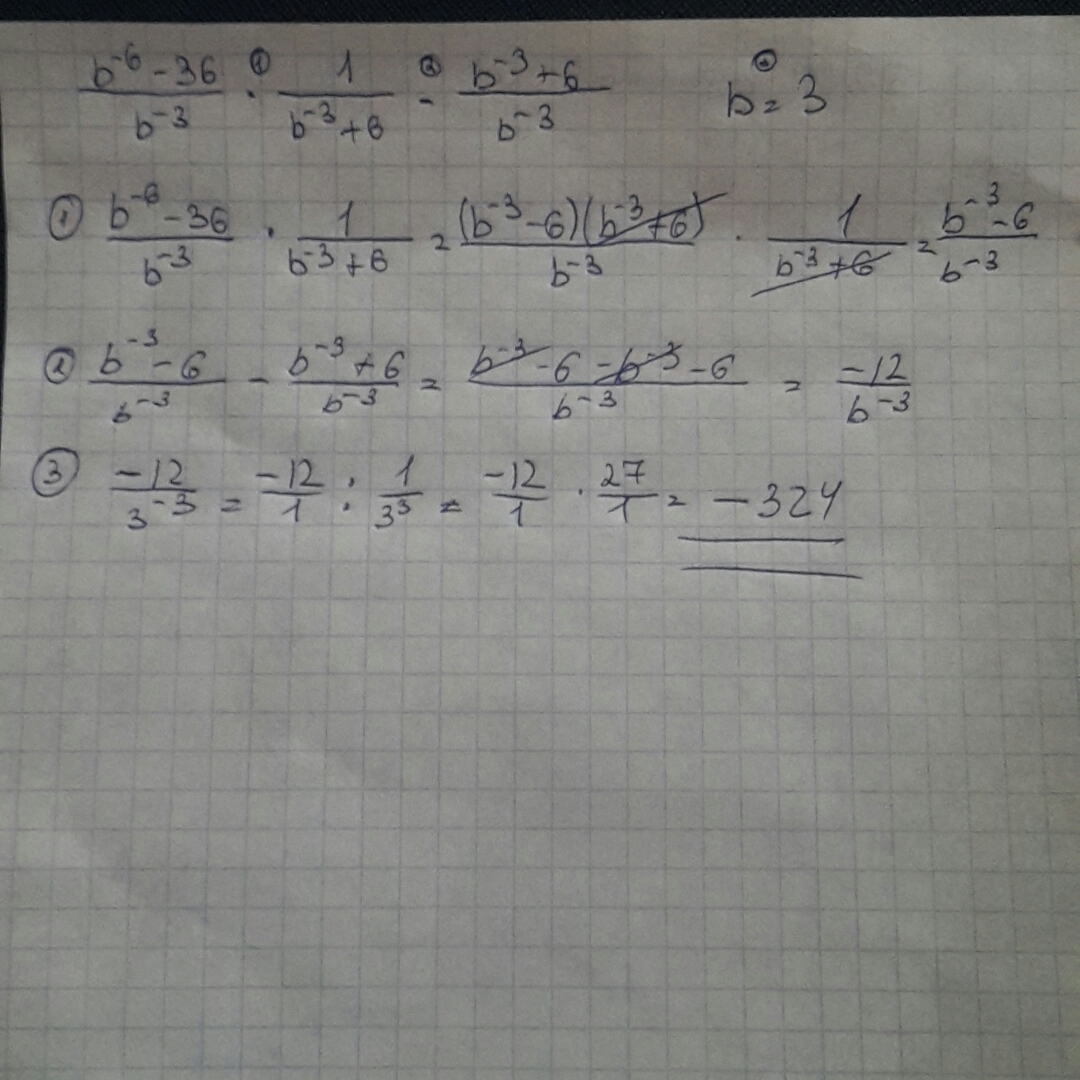 (b⁻⁶ - 36)/b⁻³ ①· 1/(b⁻³ + 6) ②- (b⁻³ + 6)/b⁻³ ③ b = 3
① (b⁻⁶ - 36)/b⁻³ · 1/(b⁻³ + 6) = (b⁻³ - 6)(b⁻³ + 6)/b⁻³ · 1/(b⁻³ + 6) = (b⁻³ - 6)/b⁻³
② (b⁻³ - 6)/b⁻³ - (b⁻³ + 6)/b⁻³ = (b⁻³ - 6 - b⁻³ - 6)/b⁻³ = -12/b⁻³
③ -12/3⁻³ = -12/1 : 1/3³ = -12/1 · 27/1 = -324